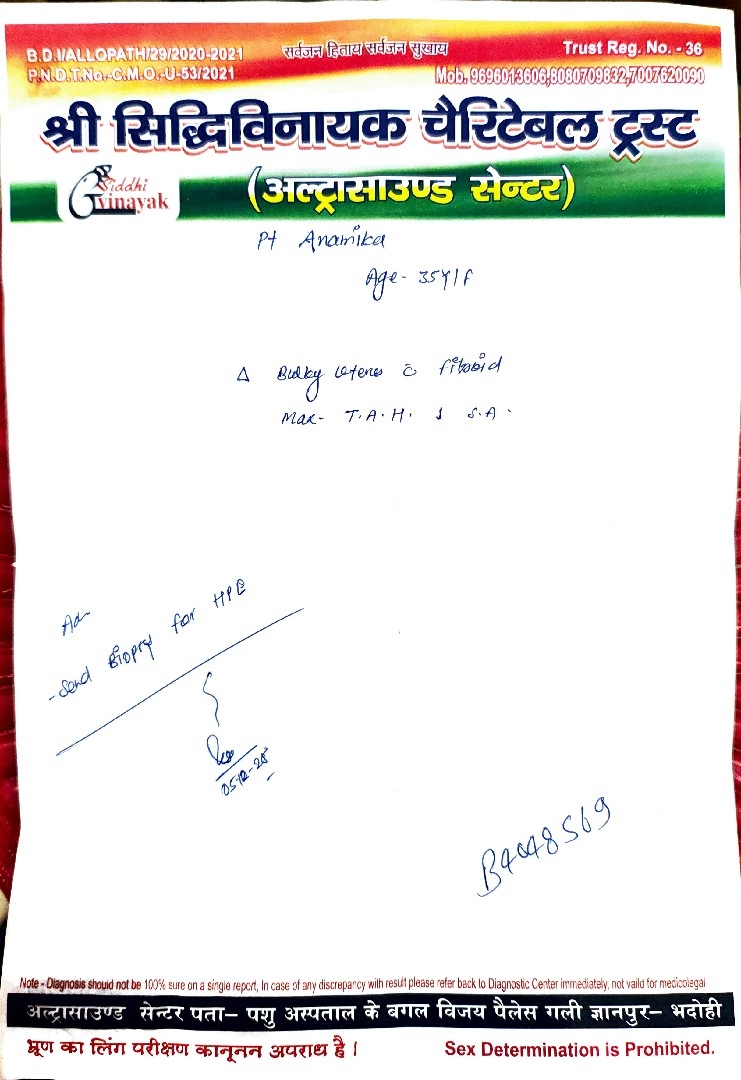 B.D.I/ALLOPATH/29/2020-2021
सर्वजन हिताय सर्वजन सुखाय
Trust Reg. No. - 36
P.N.D.T.No.-C.M.O.-U-53/2021
Mob. 9696013606,8080709832,7007620090
श्री सिद्धिविनायक चैरिटेबल ट्रस्ट
Siddhi
vinayak
(अल्ट्रासाउण्ड सेन्टर)
Pt Anamika
Age- 35Y/F
Δ Bulky uterus c̄ fibroid
Max- T.A.H. S.A.
Ad
- Send Biopsy for HPE
05-12-25
B4048569
Note - Diagnosis should not be 100% sure on a single report, In case of any discrepancy with result please refer back to Diagnostic Center immediately, not vaild for medicolegal
अल्ट्रासाउण्ड सेन्टर पता– पशु अस्पताल के बगल विजय पैलेस गली ज्ञानपुर– भदोही
भ्रूण का लिंग परीक्षण कानूनन अपराध है।
Sex Determination is Prohibited.